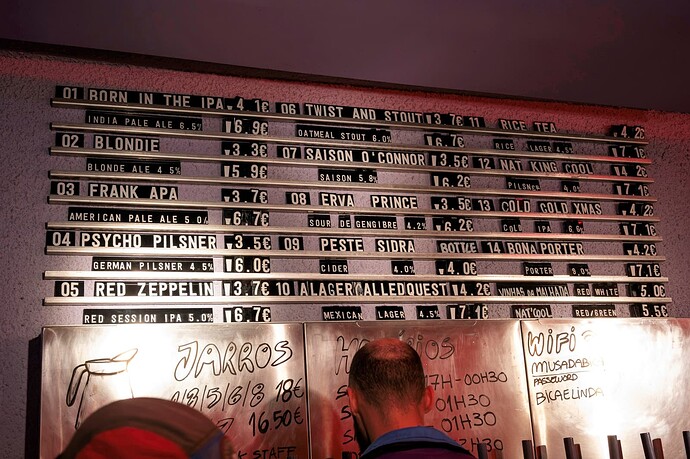 01 BORN IN THE IPA 4.1€
INDIA PALE ALE 6.5% 6.9€
02 BLONDIE 3.3€
BLONDE ALE 4.5% 5.9€
03 FRANK APA 3.7€
AMERICAN PALE ALE 5.0% 6.7€
04 PSYCHO PILSNER 3.5€
GERMAN PILSNER 4.5% 6.0€
05 RED ZEPPELIN 3.7€
RED SESSION IPA 5.0% 6.7€
06 TWIST AND STOUT 3.7€
OATMEAL STOUT 6.0% 6.7€
07 SAISON O'CONNOR 3.5€
SAISON 5.8% 6.2€
08 ERVA PRINCE 3.5€
SOUR DE GENGIBRE 4.2% 6.2€
09 PESTE SIDRA BOTTLE
CIDER 4.0% 4.0€
10 ALAGERCALLEDQUEST 4.2€
MEXICAN LAGER 4.5% 7.1€
11 RICE TEA 4.2€
RICE LAGER 4.5% 7.1€
12 NAT KING COOL 4.2€
PILSNER 4.0% 7.1€
13 COLD COLD XMAS 4.2€
COLD IPA 6.6% 7.1€
14 BONA PORTER 4.2€
PORTER 7.1€
VINHAS DA MALHADA RED WHITE 5.0€
NAT'QOOL RED/GREEN 5.5€
JARROS
1/3/5/6/8 18€
16.50€
STAFF
17H-00H30
01H30
01H30
WIFI
PASSWORD
BICAELINDA